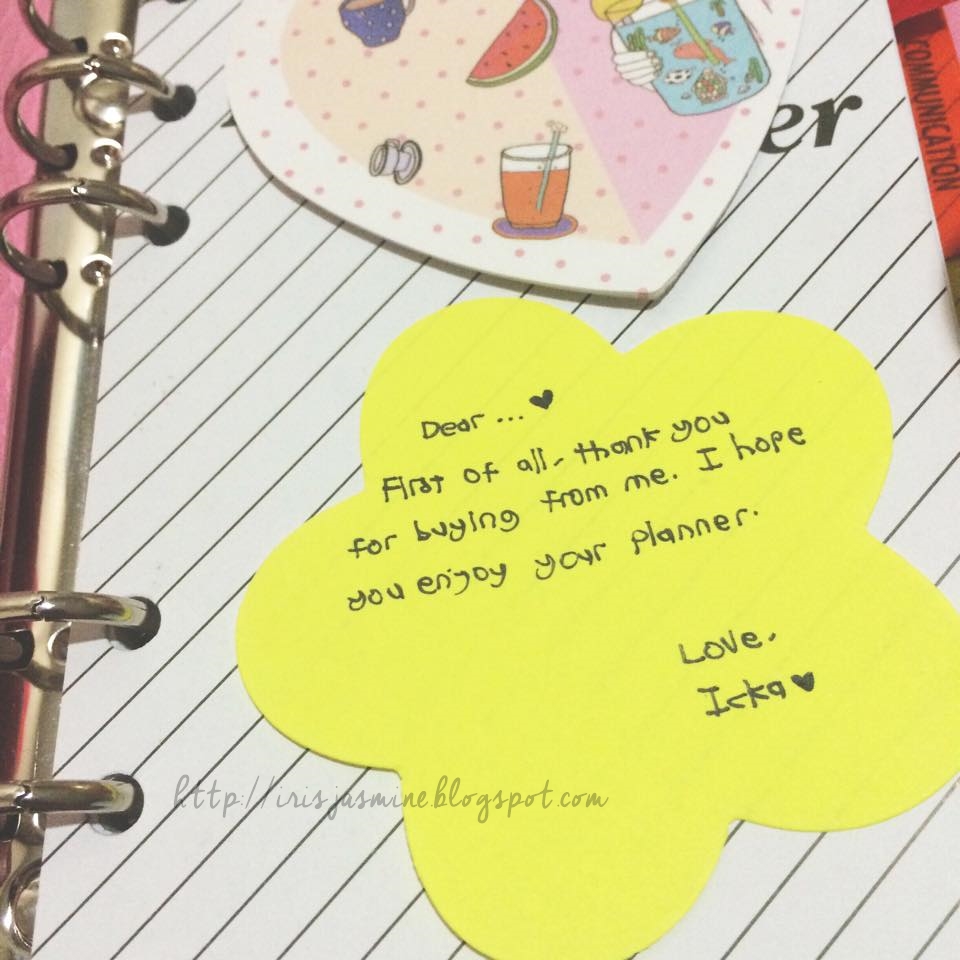 er
COMMUNICATION
Dear... ♥
First of all, thank you
for buying from me. I hope
you enjoy your planner.
Love,
Icka ♥
http://irisjasmine.blogspot.com